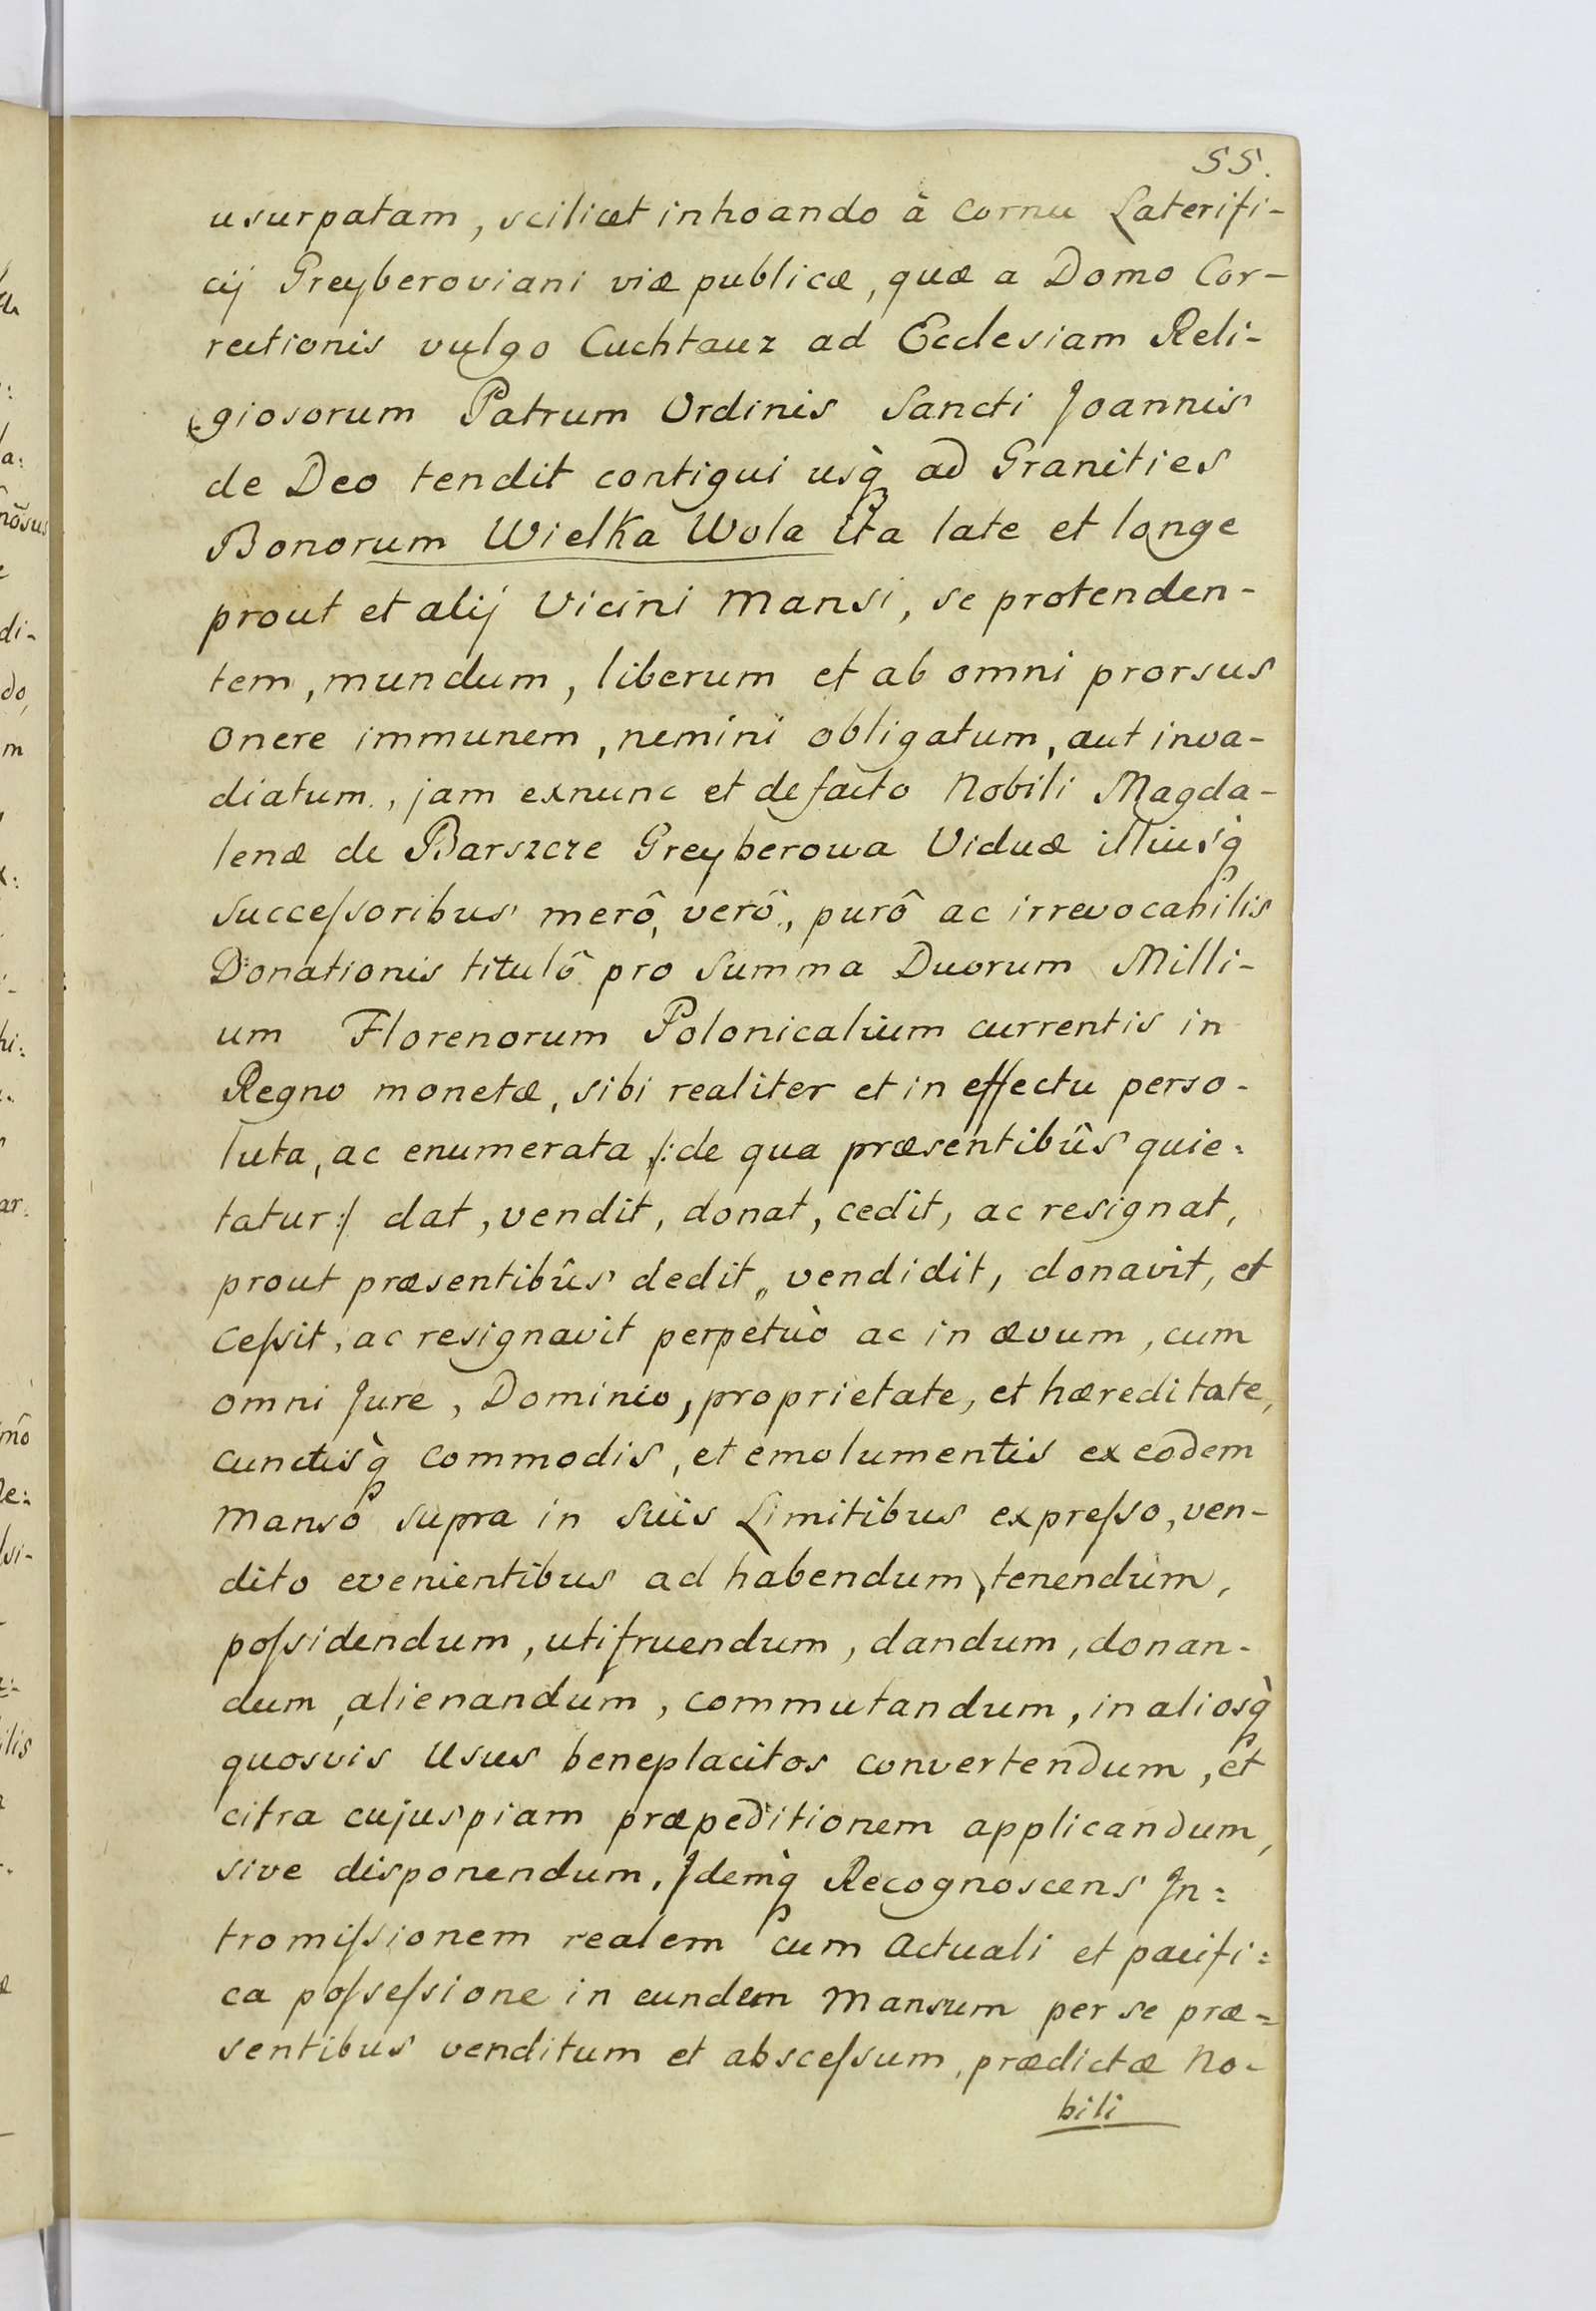 55.
usurpatam, scilicet inhoando à Cornu Laterifi-
cij Greyberoviani viæ publicæ, quæ a Domo Cor-
rectionis vulgo Cuchtauz ad Ecclesiam Reli-
giosorum Patrum Ordinis Sancti Joannis
de Deo tendit contigui usq̀ ad Granities
Bonorum Wielka Wola ita late et longe
prout et alij Vicini Mansi, se protenden-
tem, mundum, liberum et ab omni prorsus
onere immunem, nemini obligatum, aut inva-
diatum., jam exnunc et de facto Nobili Magda-
lenæ de Barszcze Greyberowa Viduæ illiusq̀
Succeſsoribus merô, verô, purô ac irrevocabilis
Donationis titulô pro Summa Duorum Milli-
um Florenorum Polonicalium currentis in
Regno monetæ, sibi realiter et in effectu perso-
luta, ac enumerata /:de qua præsentibûs quie:
tatur:/ dat, vendit, donat, cedit, ac resignat,
prout præsentibûs dedit, vendidit, donavit, et
Ceſsit, ac resignavit perpetuò ac in ævum, cum
omni Jure, Dominio, proprietate, et hæreditate,
cunctisq̀ Commodis, et emolumentis ex eodem
Manso supra in Suis Limitibus expreſso, ven-
dito evenientibus ad habendum, tenendum,
poſsidendum, utifruendum, dandum, donan-
dum, alienandum, commutandum, in aliosq̀
quosvis Usus beneplacitos convertendum, et
citra cujuspiam præpeditionem applicandum,
sive disponendum, Jdemq̀ Recognoscens Jn:
tromiſsionem realem cum Actuali et pacifi:
ca poſseſsione in eundem Mansum per se præ=
sentibus venditum et absceſsum, prædictæ No-
bili